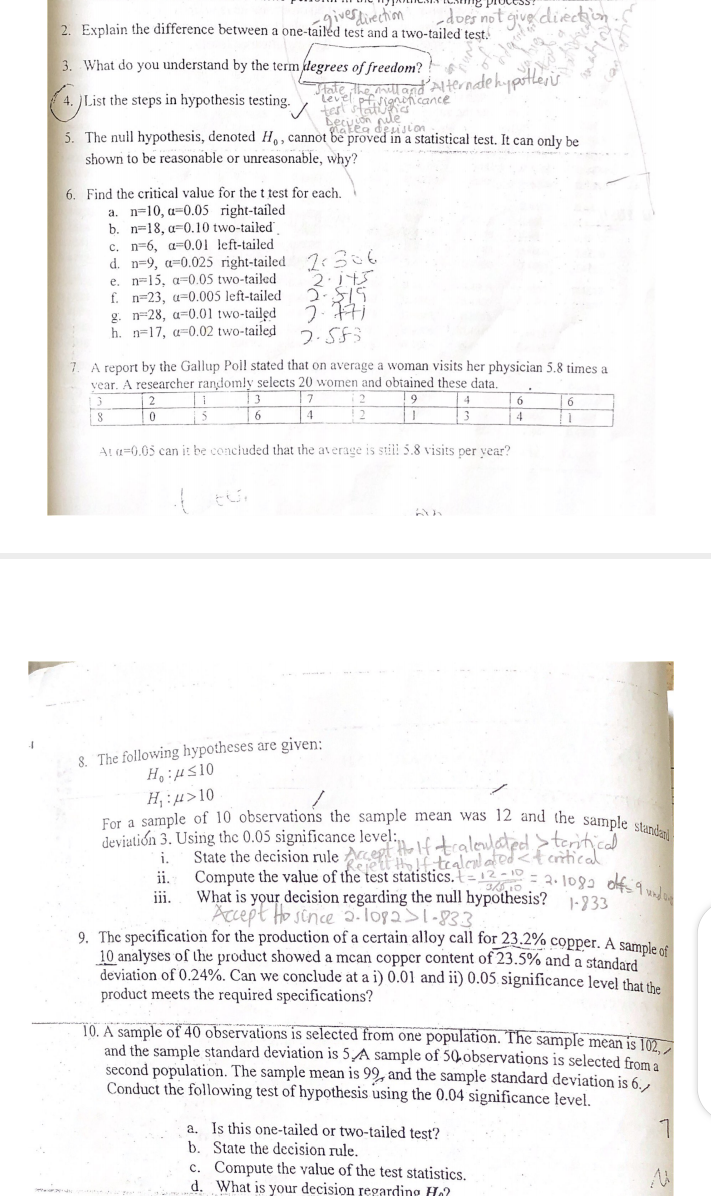 gives direction
-does not give direction.
2. Explain the difference between a one-tailed test and a two-tailed test.
3. What do you understand by the term degrees of freedom?
State the null and Alternate hypothesis
4. List the steps in hypothesis testing.
Level of significance
test statistics
Decision rule
Making decision
5. The null hypothesis, denoted H₀, cannot be proved in a statistical test. It can only be
shown to be reasonable or unreasonable, why?
6. Find the critical value for the t test for each.
a. n=10, α=0.05 right-tailed
b. n=18, α=0.10 two-tailed
c. n=6, α=0.01 left-tailed
d. n=9, α=0.025 right-tailed 2.306
e. n=15, α=0.05 two-tailed 2.145
f. n=23, α=0.005 left-tailed 2.819
g. n=28, α=0.01 two-tailed 2.771
h. n=17, α=0.02 two-tailed 2.583
7. A report by the Gallup Poll stated that on average a woman visits her physician 5.8 times a
year. A researcher randomly selects 20 women and obtained these data.
3 2 1 3 7 2 9 4 6 6
8 0 5 6 4 2 1 3 4 1
At α=0.05 can it be concluded that the average is still 5.8 visits per year?
8. The following hypotheses are given:
H₀ : μ ≤ 10
H₁ : μ > 10
For a sample of 10 observations the sample mean was 12 and the sample standard
deviation 3. Using the 0.05 significance level:
Accept Ho If tcalculated > tcritical
i. State the decision rule
Reject Ho If tcalculated < t critical
ii. Compute the value of the test statistics. t = 12 - 10 / 3/√10 = 2.1082 df=9
iii. What is your decision regarding the null hypothesis? 1.833
Accept Ho since 2.1082 > 1.833
9. The specification for the production of a certain alloy call for 23.2% copper. A sample of
10 analyses of the product showed a mean copper content of 23.5% and a standard
deviation of 0.24%. Can we conclude at a i) 0.01 and ii) 0.05 significance level that the
product meets the required specifications?
10. A sample of 40 observations is selected from one population. The sample mean is 102,
and the sample standard deviation is 5. A sample of 50 observations is selected from a
second population. The sample mean is 99, and the sample standard deviation is 6.
Conduct the following test of hypothesis using the 0.04 significance level.
a. Is this one-tailed or two-tailed test?
b. State the decision rule.
c. Compute the value of the test statistics.
d. What is your decision regarding H₀?